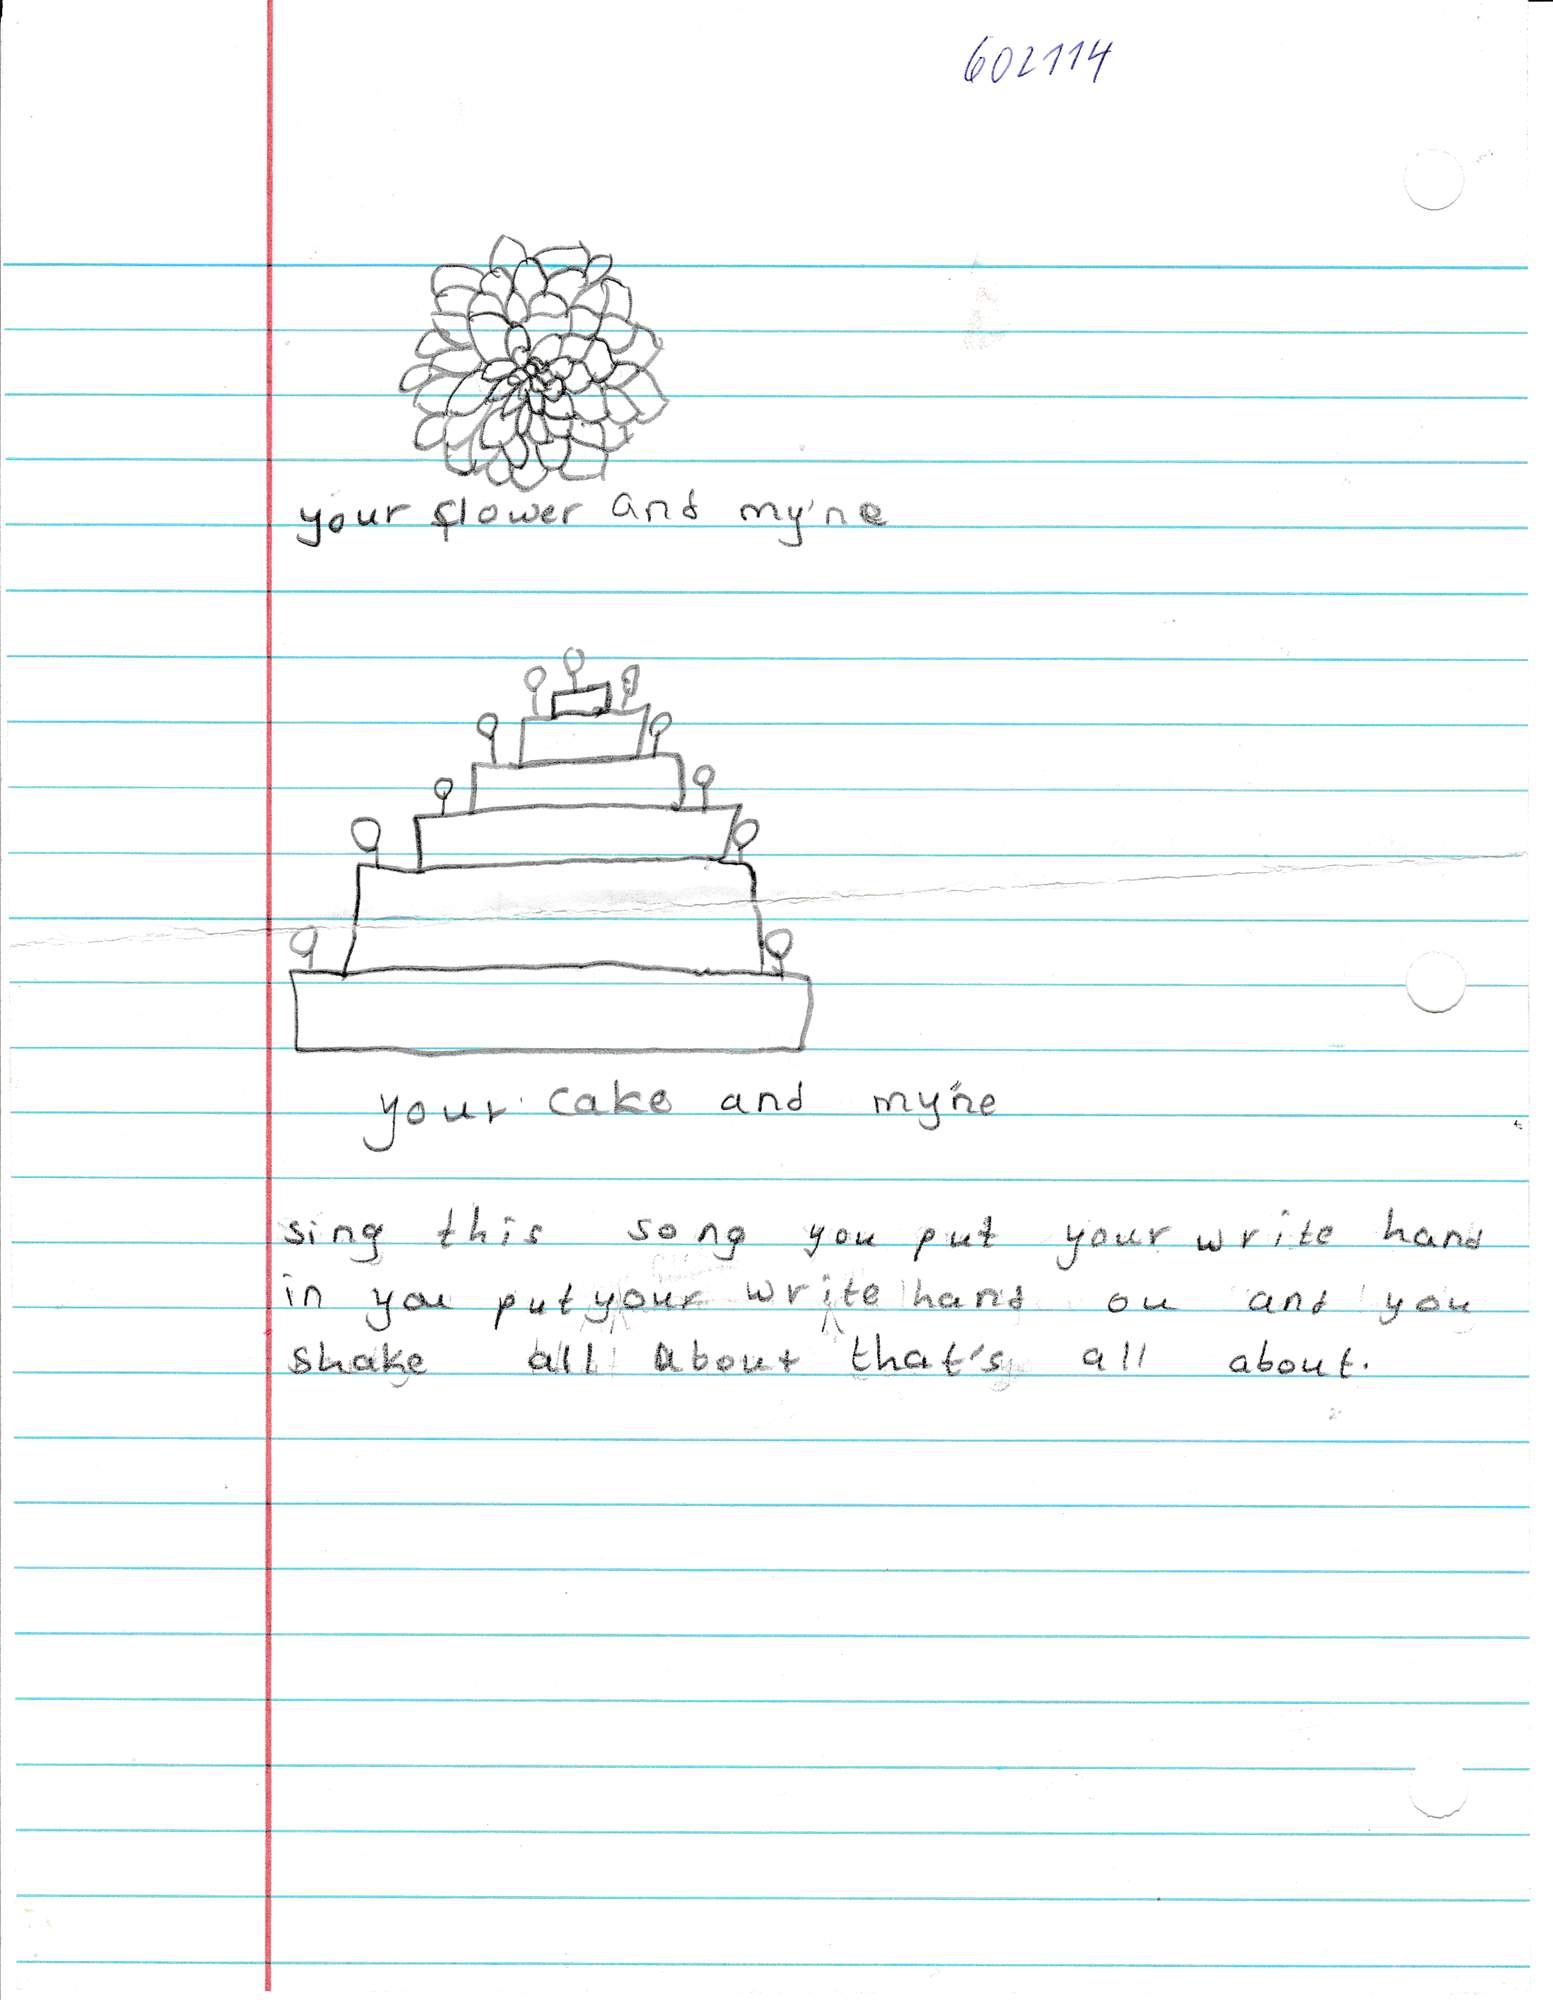 602114
your flower and my'ne
your cake and my'ne
sing this song you put your write hand
in you put your write hand ou and you
shake all about that's all about.